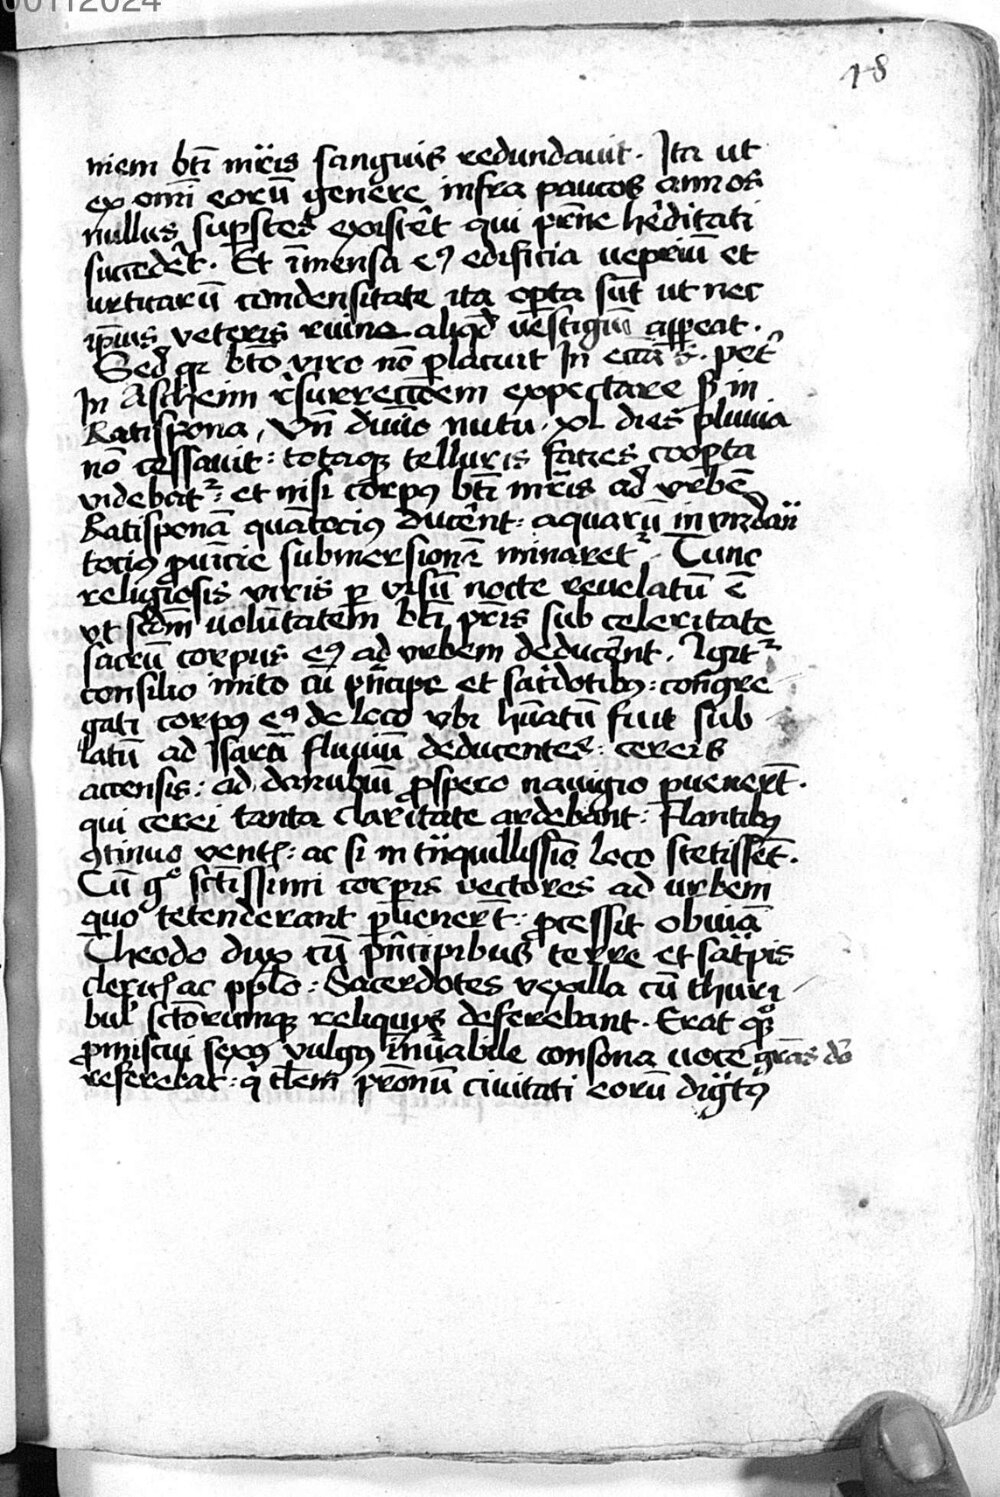 00112024
18
niem bt̄i mr̄is sanguis redundavit. Ita ut
ex om̄i eorū genere infra paucos annos
nullus sup̄stes existēt qui pr̄ne hēditati
succedēt. Et īmensa eꝰ edificia vepriū et
urticarū condensitate ita op̄ta sūt ut nec
ip̄ius veteris ruine aliqd̄ vestigiū apꝑeat.
Sed qꝛ bt̄o viro nō placuit In ecc̄ia s. pet̄
In Ascheim r̄surrecc̄oem expectare sꝫ in
Ratispona, Vn̄ divīo nutu. xl dies pluvia
nō cessavit: totaqꝫ telluris facies coop̄ta
videbatᷣ: et nisi corpꝰ bt̄i mr̄is ad vrbē
Ratisponā quātociꝰ ducēnt: aquarū inūdacī
tociꝰ ꝓvīcie submersionē minaretᷣ. Tunc
religiosis viris ꝑ visū nocte revelatū ē
vt scd̄m volūtatem bt̄i pr̄is sub celeritate
sacrū corpus eꝰ ad vrbem deducēnt. Igitᷣ
consilio inito cū pn̄cipe et sac̄dotibꝰ: congre
gati corpꝰ eꝰ de loco vbi hūatū fuit sub
latū ad Isarā fluviū deducentes: cereis
accensis: ad danubiū ꝓspero navigio ꝑvenerūt.
qui cerei tanta claritate ardebant: Flantibꝰ
ꝯtinuo ventꝭ: ac si in tn̄quillissīo loco stetissēt.
Cū gͦ sct̄issimi corꝑis vectores ad urbem
quo tetenderant ꝑvenerūt: ꝓcessit obviā
Theodo dux cū pn̄cipibus terre et sat̄pis
clericꝭ ac ppl̄o: Sacerdotes vexilla cū thuri
bul̄ sct̄orumqꝫ reliquiis deferebant. Erat qͦꝫ
ꝓmiscui sexꝰ vulgꝰ in̄ūabile consona voce gr̄as do
referebat: qͥ tl̄em pr̄onū civitati eorū dir̄gt̄ꝰ